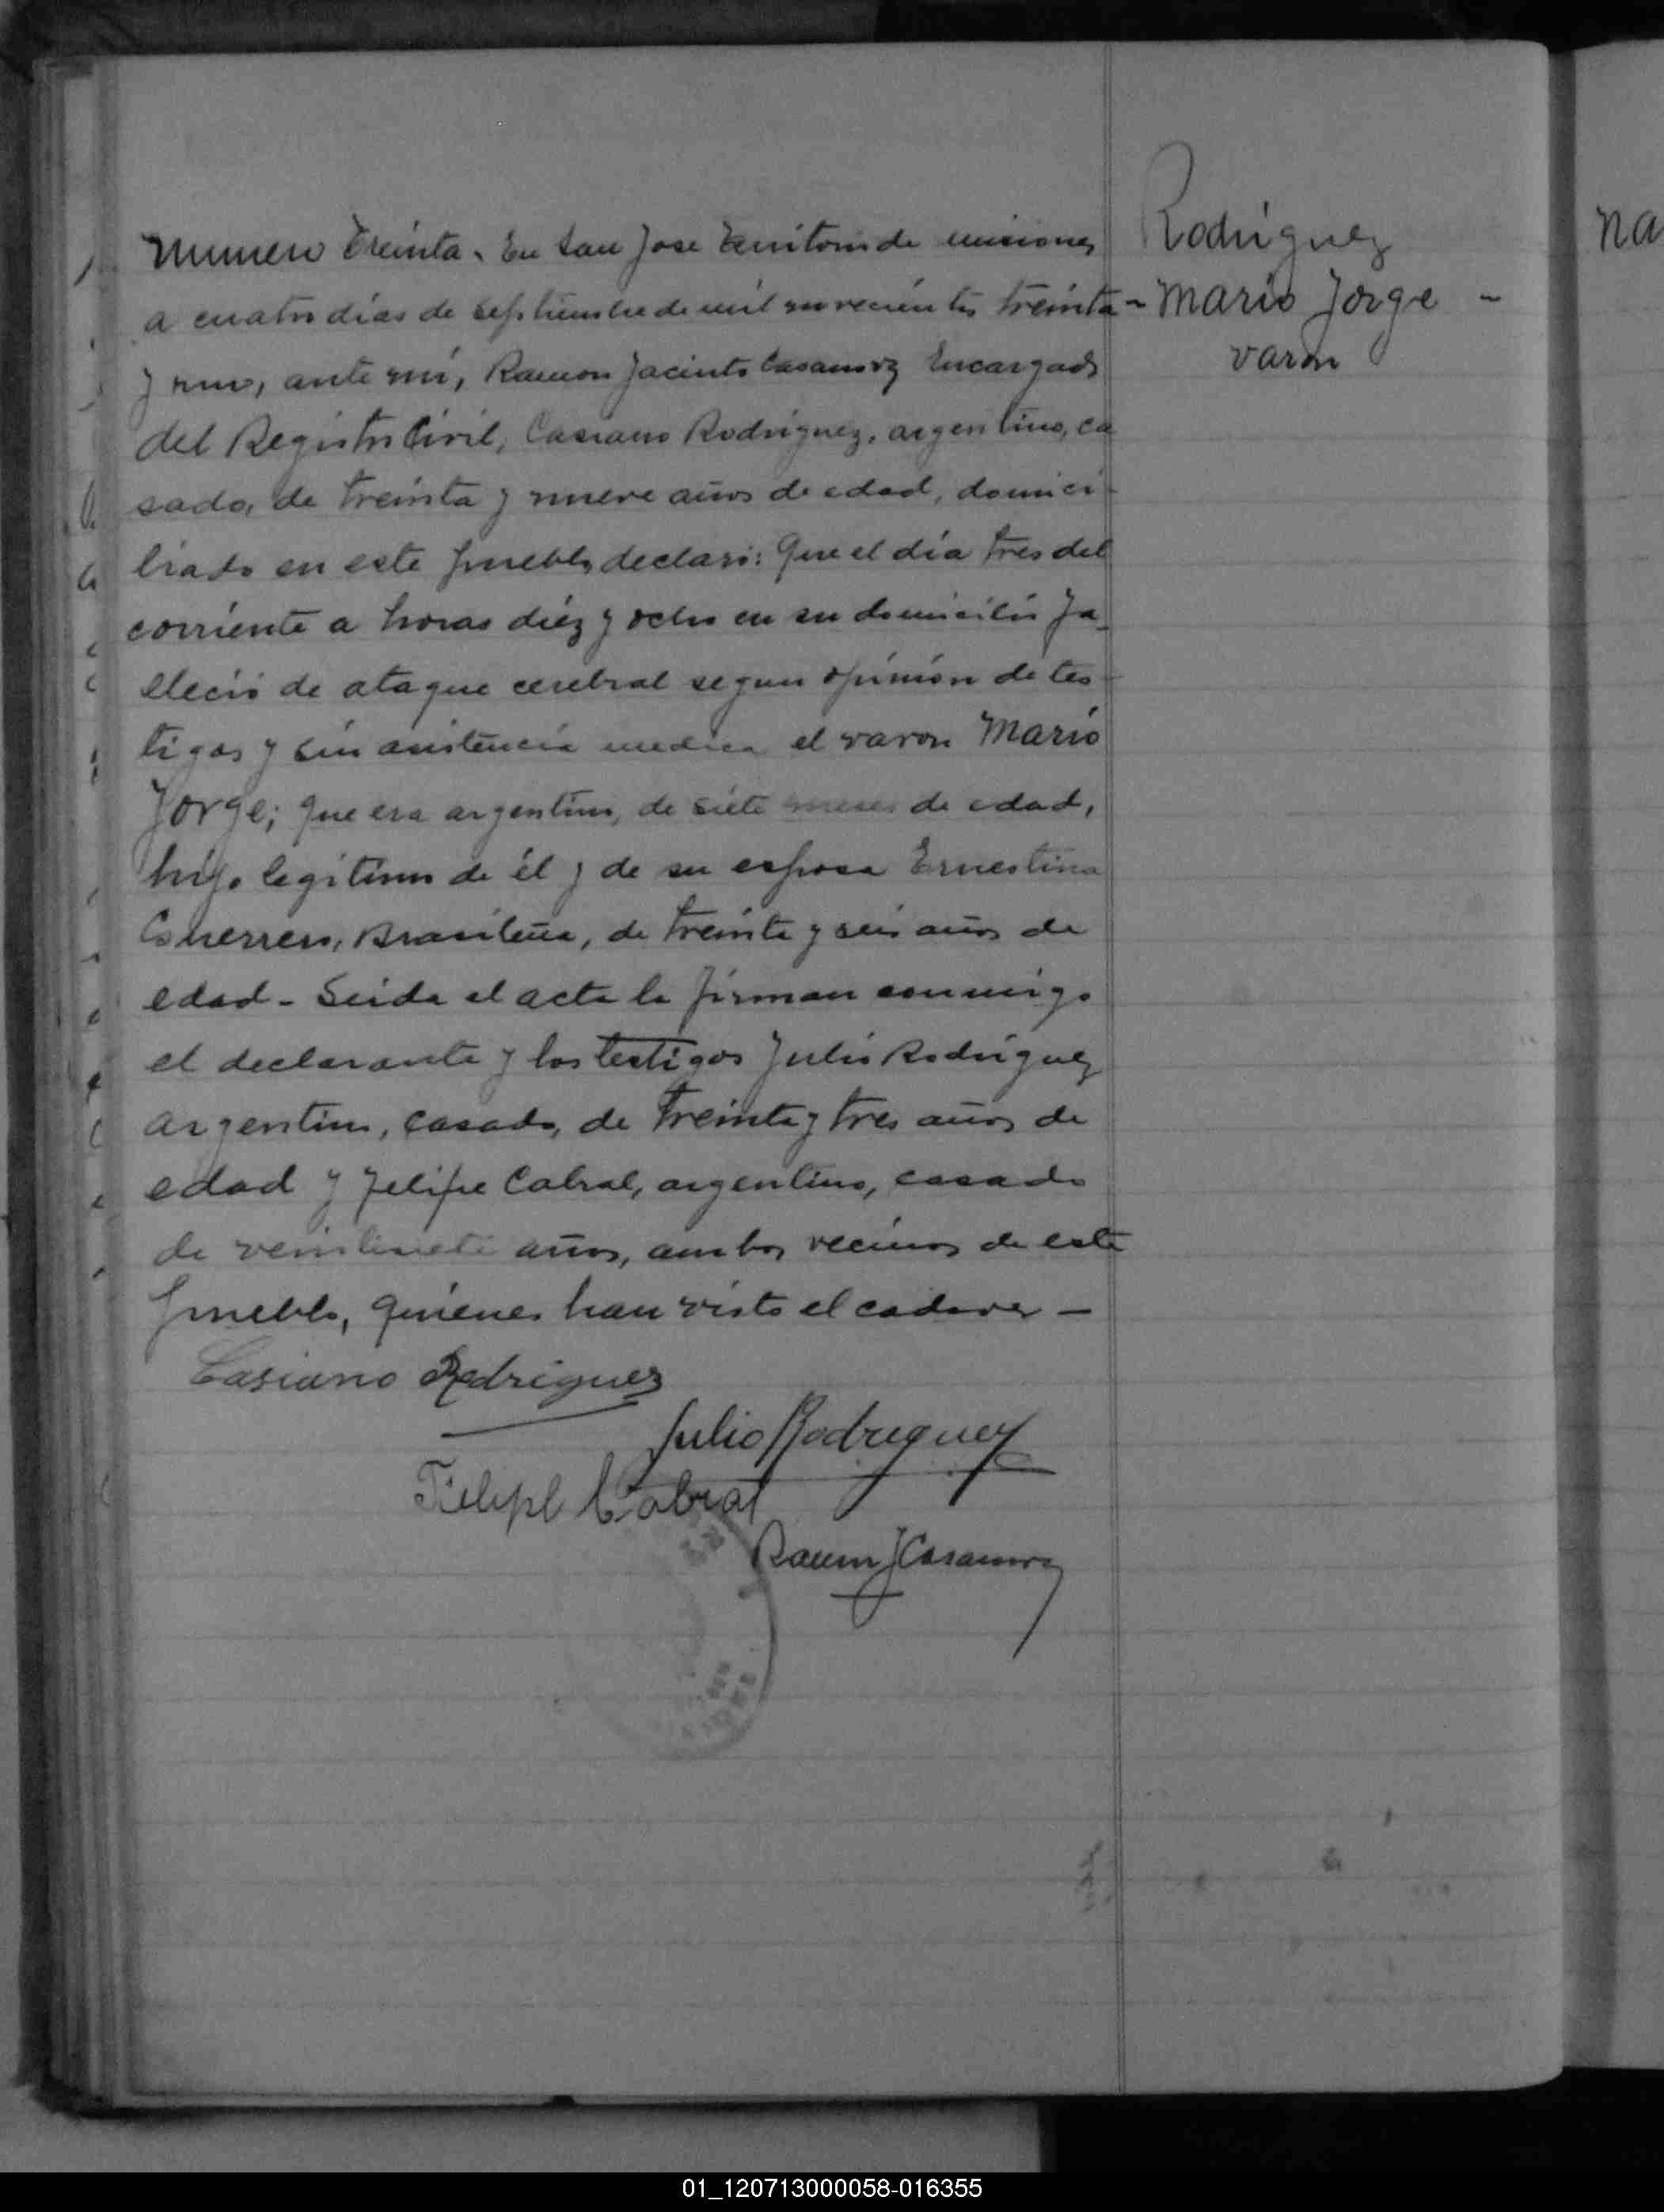 Numero Treinta. En San Jose Territorio de misiones
a cuatro dias de septiembre de mil novecientos treinta
y uno, ante mí, Ramon Jacinto Casanova Encargado
del Registro Civil, Casiano Rodriguez, argentino, ca
sado, de treinta y nueve años de edad, domici-
liado en este pueblo, declaró: Que el día tres del
corriente a horas diéz y ocho en su domicilio fa-
lleció de ataque cerebral segun opinión de tes-
tigos y sin asistencia medica el varon Mario
Jorge; que era argentino, de siete meses de edad,
hijo legitimo de él y de su esposa Ernestina
Guerrero, Brasileña, de treinta y seis años de
edad - Leida el acta la firman conmigo
el declarante y los testigos Julio Rodriguez
argentino, casado, de treinta y tres años de
edad y Felipe Cabral, argentino, casado
de veintisiete años, ambos vecinos de este
pueblo, quienes han visto el cadaver -
Casiano Rodriguez
Julio Rodriguez
Felipe Cabral
Ramon J Casanova
Rodriguez
- Mario Jorge -
varon
na
01_120713000058-016355